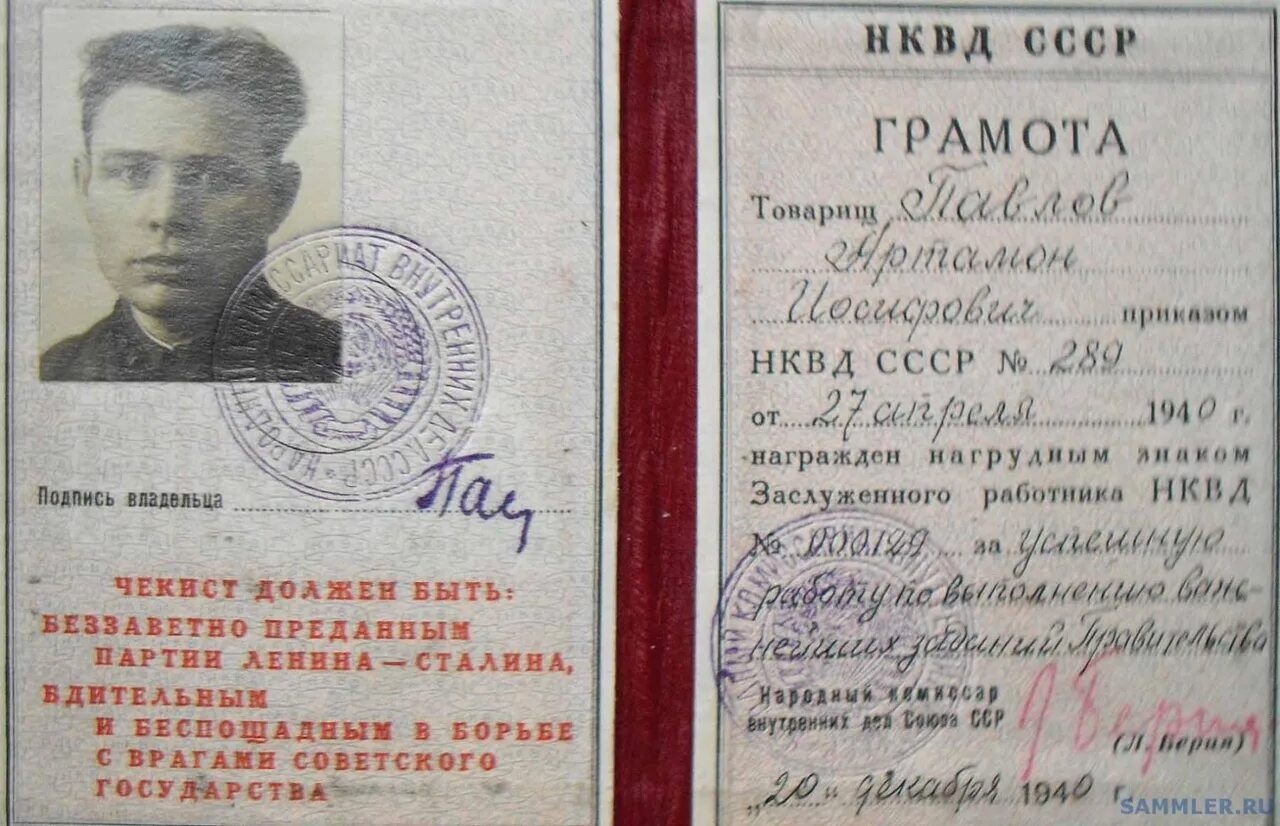 НАРОДНЫЙ КОМИССАРИАТ ВНУТРЕННИХ ДЕЛ СССР
Подпись владельца Пав
ЧЕКИСТ ДОЛЖЕН БЫТЬ:
БЕЗЗАВЕТНО ПРЕДАННЫМ
ПАРТИИ ЛЕНИНА—СТАЛИНА,
БДИТЕЛЬНЫМ
И БЕСПОЩАДНЫМ В БОРЬБЕ
С ВРАГАМИ СОВЕТСКОГО
ГОСУДАРСТВА
НКВД СССР
ГРАМОТА
Товарищ Павлов
Артамон
Иосифович приказом
НКВД СССР № 289
от 27 апреля 1940 г.
награжден нагрудным знаком
Заслуженного работника НКВД
№ 000129 за успешную
работу по выполнению важ-
нейших заданий Правительства
Народный комиссар
внутренних дел Союза ССР
Л Берия
(Л. Берия)
„20" декабря 1940 г.
SAMMLER.RU